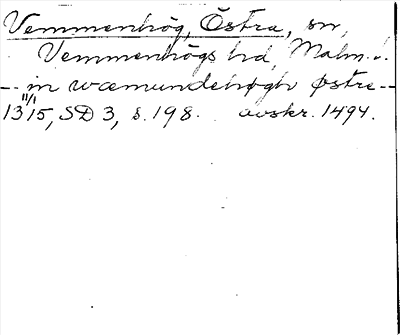 Vemmenhög, Östra, sn,
Vemmenhögs hd, Malm. l.
-- in wæmundehøgh østre --
13 11/1 15, SD 3, s. 198. avskr. 1494.